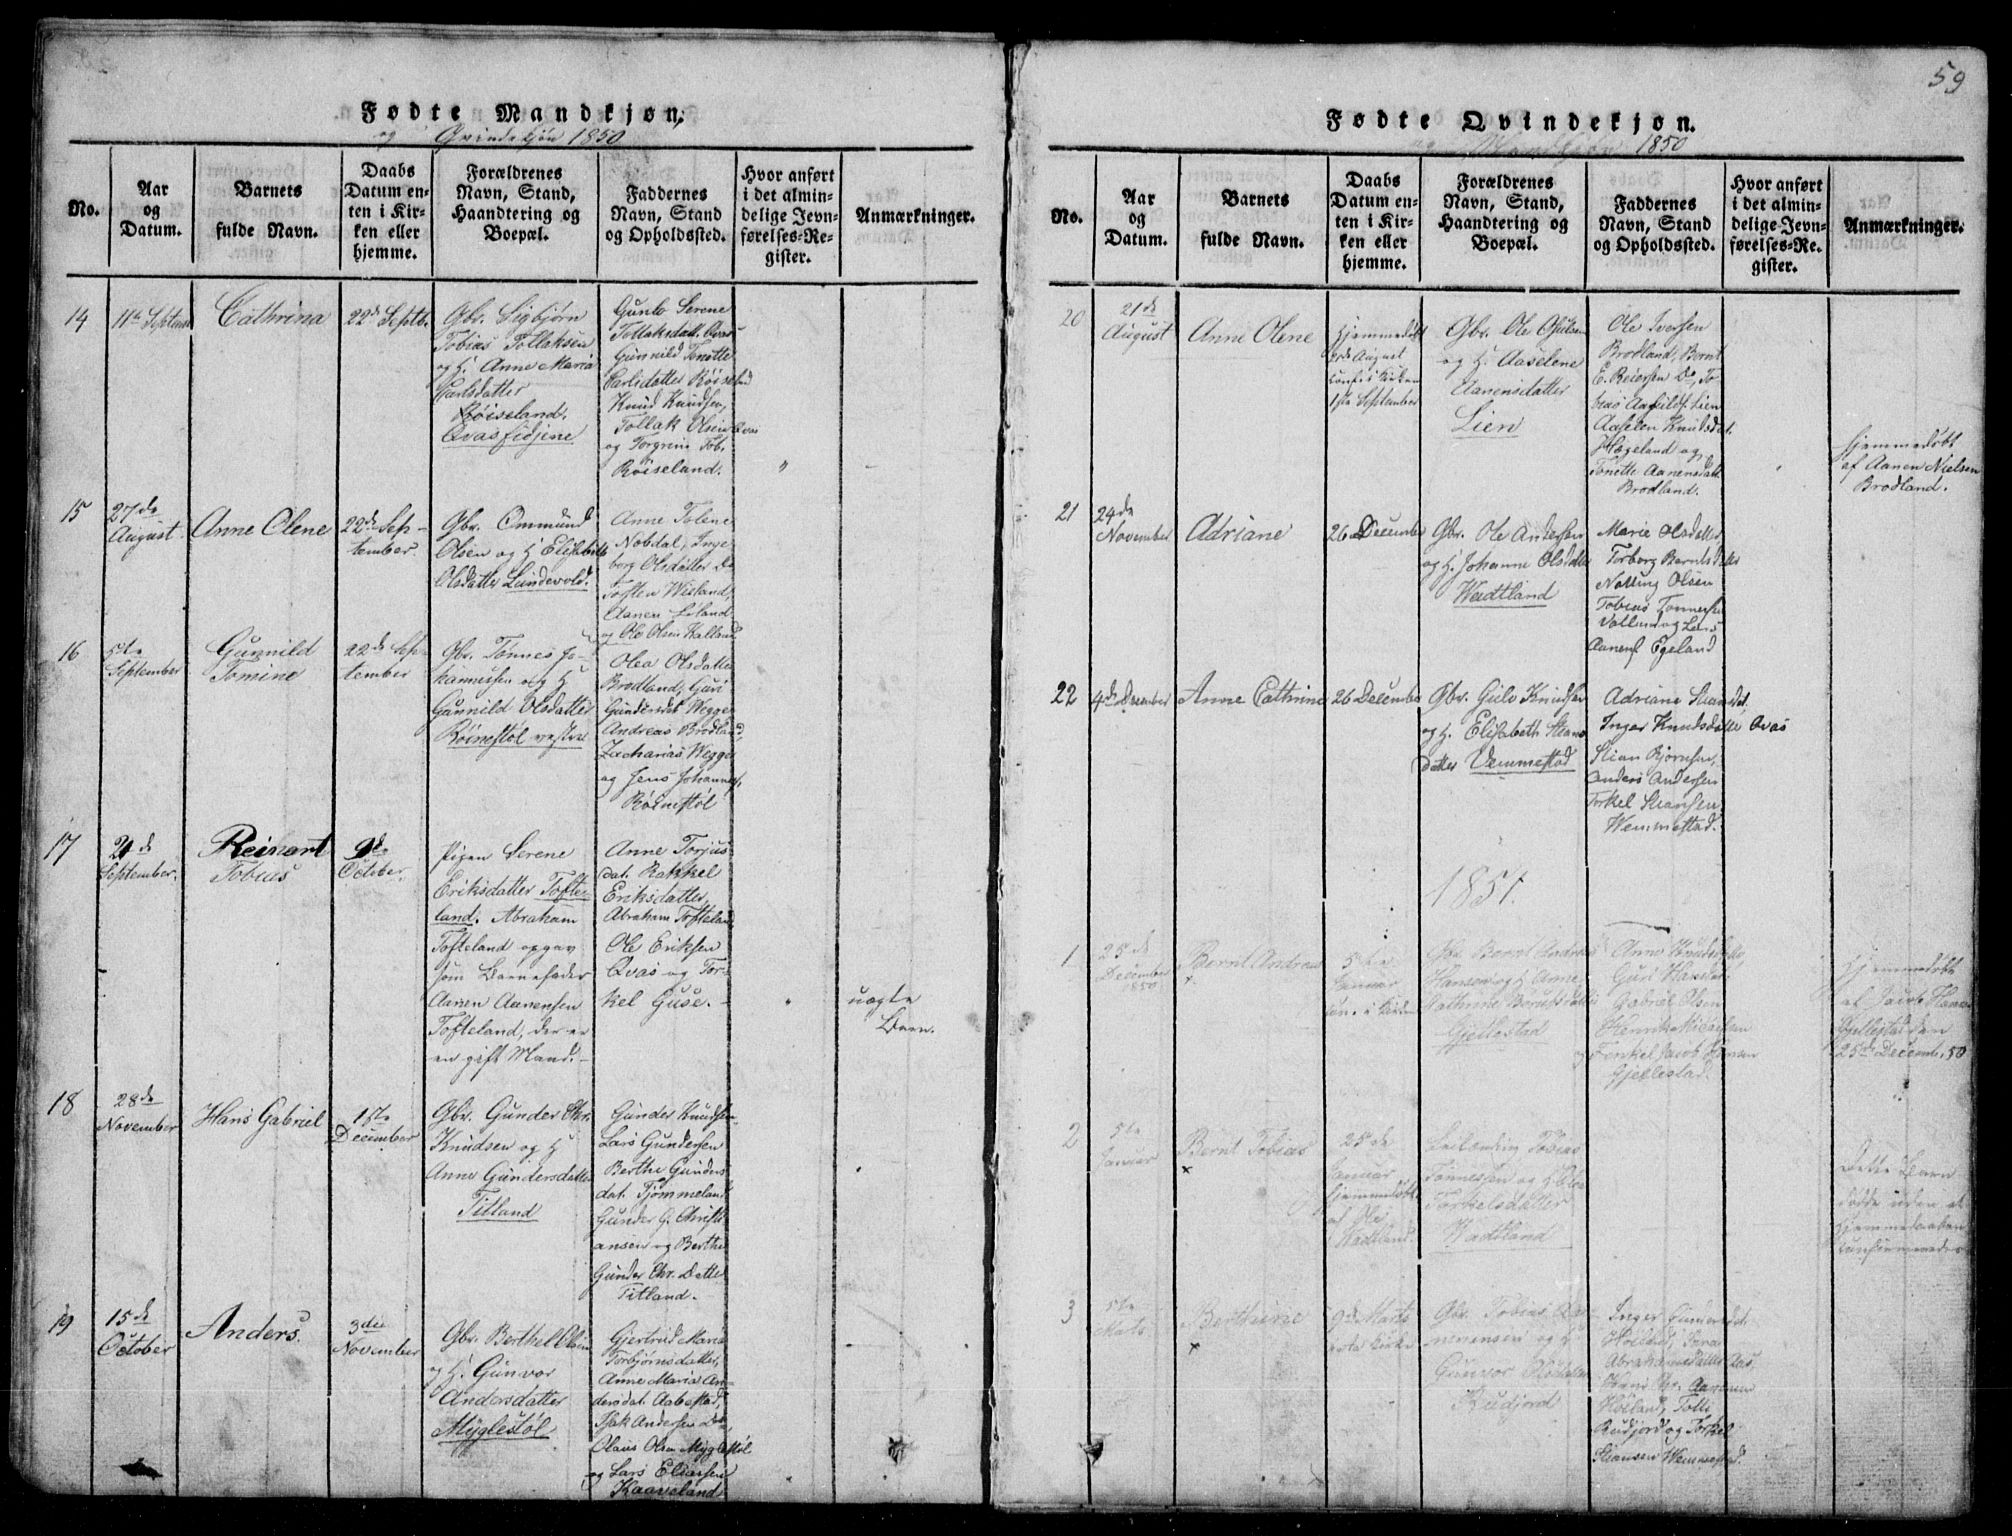 59
Fødte Mandkjøn,
og Qvindekjøn 1850
No.
Aar
og
Datum.
Barnets
fulde Navn.
Daabs
Datum en-
ten i Kir-
ken eller
hjemme.
Forældrenes
Navn, Stand,
Haandtering og
Boepæl.
Faddernes
Navn, Stand
og Opholdssted.
Hvor anført
i det almin-
delige Jevn-
førelses-Re-
gister.
Anmærkninger.
14
11te Septem
Cathrina
22de Septb.
Gbr. Sigbjørn
Tobias Tollaksen
og H. Anne Maria
Carlsdatter
Røiseland.
Qvasfidjene
Gunto Serene
Tollaksdatt. Qvas
Gunnild Tonette
Carlsdatter Røiseland
Knud Knudsen,
Tollak Olsen Qvas
og Torgrim Tob.
Røiseland.
"
15
27de
August
Anne Olene
22de Sep-
tember
Gbr. Ommund
Olsen og H Elisabeth
Olsdatter Lundevold.
Anne Tolene
Nobdal, Inge
borg Olsdatter Do
Toften Wisland,
Aanen
og Ole Olsen Halland.
16
5te
September
Gunnild
Tomine
22de Sep-
tember
Gbr. Tønnes Jo-
hannesen og H
Gunnild Olsdatter
Røinestøl vestre
Olea Olsdatter
Brodland, Guri
Gundersdt. Wegge
Andreas Brodland,
Zacharias Wegge
og Jens Johannes.
Røinestøl
17
21de
September.
Reinert
Tobias
9de
October.
Pigen Serene
Eriksdatter Tofte-
land. Abraham
Tofteland opgav
som Barnefader
Aanen Aanensen
Tofteland, der er
en gift Mand.-
Anne Torjus
dat. Rakkel
Eriksdatter,
Abraham Tofteland
Ole Eriksen
Qvas og Tor-
kel Guse.-
"
uægte
Barn.
18
28de
November
Hans Gabriel
1ste
December
Gbr. Gunder Chr.
Knudsen og H
Anne Gundersdatter
Titland
Gunder Knudsen
Lars Gundersen
Berthe Gunders
dat. Tjommeland
Gunder G. Christi
ansen og Berthe
Gunder Chr. Datter
Titland.-
19
15de
October
Anders.
3die
November
Gbr. Berthel Olsen
og H. Gunvor
Andersdatter
Myglestøl
Gjertrud Maria
Torbjørnsdatter,
Anne Maria An-
dersdat. Aabestad,
Isak Andersen Do,
Olaus Olsen Myglestøl
og Lars Eliassen
Kaaveland
Fødte Qvindekjøn.
og Mandkjøn 1850
No.
Aar
og
Datum.
Barnets
fulde Navn.
Daabs
Datum en-
ten i Kir-
ken eller
hjemme.
Forældrenes
Navn, Stand,
Haandtering og
Boepæl.
Faddernes
Navn, Stand
og Opholdssted.
Hvor anført
i det almin-
delige-Jevn-
førelses-Re-
gister.
Anmærkninger.
20
21de
August
Anne Olene
Hjemmedøbt
August
Conf. i Kirken
1ste September
Gbr. Ole
og H. Aaselene
Aanensdatter
Lien
Ole Iversen
Brodland, Bernt
E. Reiersen Do, To-
bias Lien
Aaselen Knudsdat.
Hægeland og
Tonette Aanensdat.
Brodland.
Hjemmedøbt
af Aanen Nielsen
Brodland.
21
24de
November
Adriane
26 December
Gbr. Ole Andersen
og H. Johanne Olsdatter
Wadtland
Marie Olsdatter,
Torborg Berntsdatter
Olsen
Tobias Tønnesen
og Lars
Aanens. Egeland
22
4de December
Anne Cathrine
26 December
Gbr. Gulov Knudsen
og H. Elisabeth Steans
datter Vemmestad
Adriane
Inger Knudsdatter Qvas
Stian Bjørnsen,
Anders Andersen
Torkel Stiansen
Wemmestad.
1851.
1
25de
December
1850
Bernt Andreas
5te
Januar
con. i Kirken
Gbr. Bernt Andreas
Hansen og H Anne
Cathrine Berntsdatter
Gjellestad
Anne Knudsdatter
Guri Hansdat.
Gabriel Olsen
Henrik
og Jacob Hansen
Gjellestad.
Hjemmedøbt
af Jacob Hansen
Gjellestad den
25de Decemb. 50
2
5te
Januar
Bernt Tobias
25de
Januar
hjemmedøbt
af Ole
Wadtland.
Leilænding Tobias
Tønnesen og H
Torkelsdatter
Wadtland
Dette Barn
døde uden at
hjemmedaaben
confirmeredes
3
5te
Marts
Berthine
9de Marts
Kirke
Gbr. Tobias
og H
Gunvor
Rudjord
Inger Gundersdat.
Høiland,
Abrahamsdatter Aas,
Aanen
Høiland,
Rudjord og Torkel
Stiansen Wemmestad.